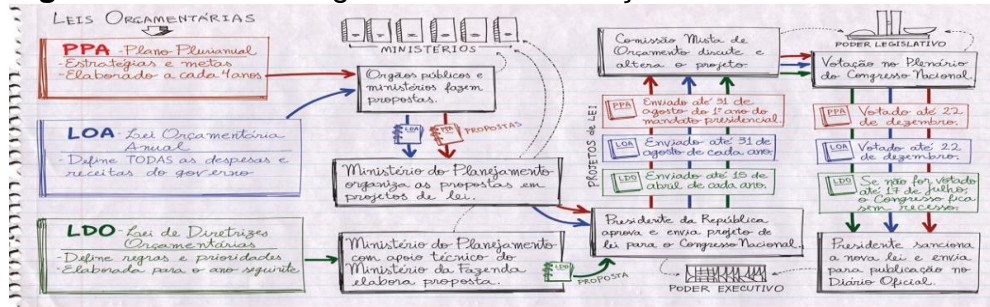 LEIS ORÇAMENTÁRIAS
PPA - Plano Plurianual
- Estratégias e metas
- Elaborado a cada 4 anos
LOA - Lei Orçamentária
Anual
- Define TODAS as despesas e
receitas do governo
LDO - Lei de Diretrizes
Orçamentárias
- Define regras e prioridades
- Elaborada para o ano seguinte
MINISTÉRIOS
Órgãos públicos e
ministérios fazem
propostas.
LOA
PPA
PROPOSTAS
Ministério do Planejamento
organiza as propostas em
projetos de lei.
Ministério do Planejamento
com apoio técnico do
Ministério da Fazenda
elabora proposta.
LDO
PROPOSTA
PROJETOS de LEI
Comissão Mista de
Orçamento discute e
altera o projeto.
PPA
Enviado até 31 de
agosto do 1º ano do
mandato presidencial.
LOA
Enviado até 31 de
agosto de cada ano.
LDO
Enviado até 15 de
abril de cada ano.
Presidente da República
aprova e envia projeto de
lei para o Congresso Nacional.
PODER EXECUTIVO
PODER LEGISLATIVO
Votação no Plenário
do Congresso Nacional.
PPA
Votado até 22
de dezembro.
LOA
Votado até 22
de dezembro.
LDO
Se não for votado
até 17 de julho,
o Congresso fica
sem recesso.
Presidente sanciona
a nova lei e envia
para publicação no
Diário Oficial.